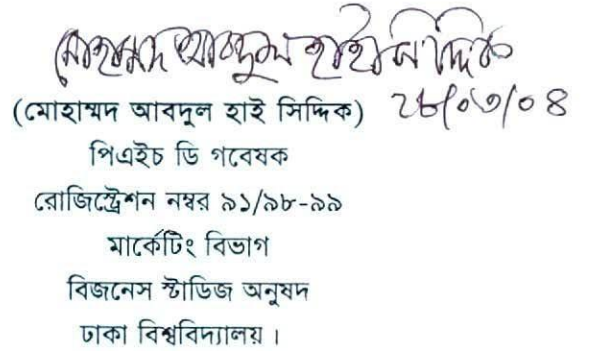 মোহাম্মদ আবদুল হাই সিদ্দিক
(মোহাম্মদ আবদুল হাই সিদ্দিক) ২৮/০৩/০৪
পিএইচ ডি গবেষক
রোজিস্ট্রেশন নম্বর ৯১/৯৮-৯৯
মার্কেটিং বিভাগ
বিজনেস স্টাডিজ অনুষদ
ঢাকা বিশ্ববিদ্যালয়।